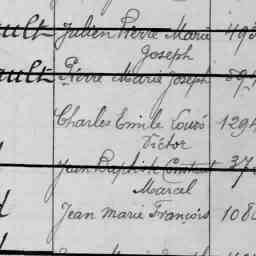 ault Julien Pierre Marie 493
Joseph
ault Pierre Marie Joseph 59
Charles Emile Louis 1294
Victor
d Jean Baptiste Constant 373
Marcel
d Jean Marie François 108